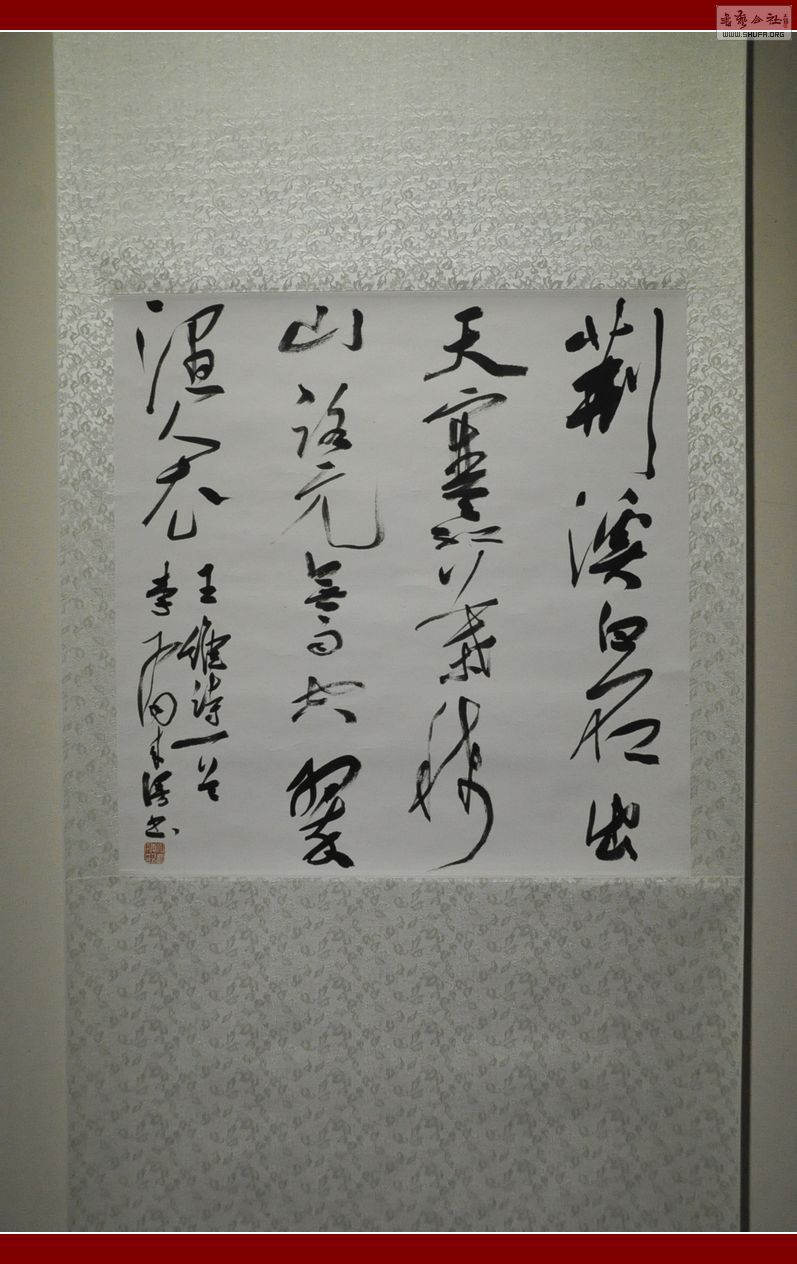 荆溪白石出
天寒红叶稀
山路元無雨空翠
湿人衣
王维诗一首
李
书
WWW.SHUFA.ORG